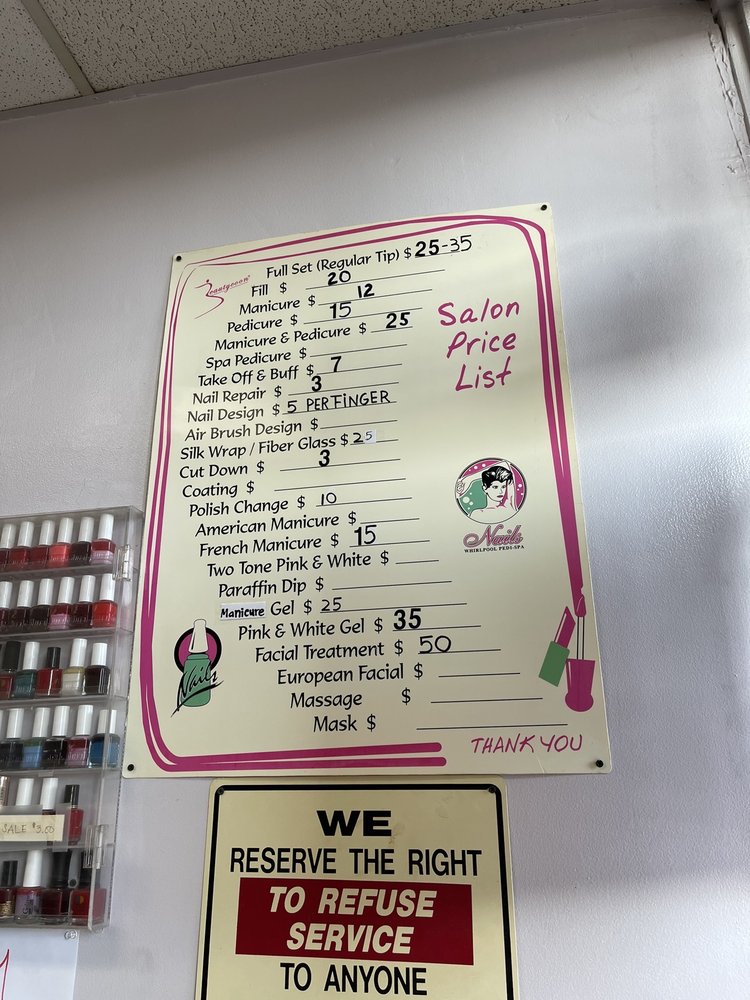 Beautycoon
Full Set (Regular Tip) $ 25-35
Fill $ 20
Manicure $ 12
Pedicure $ 15
Manicure & Pedicure $ 25
Spa Pedicure $
Take Off & Buff $ 7
Nail Repair $ 3
Nail Design $ 5 PER FINGER
Air Brush Design $
Silk Wrap / Fiber Glass $ 25
Cut Down $ 3
Coating $
Polish Change $ 10
American Manicure $
French Manicure $ 15
Two Tone Pink & White $
Paraffin Dip $
Manicure Gel $ 25
Pink & White Gel $ 35
Facial Treatment $ 50
European Facial $
Massage $
Mask $
Salon
Price
List
Nails
WHIRLPOOL PEDI-SPA
Nails
THANK YOU
SALE $3.00
WE
RESERVE THE RIGHT
TO REFUSE
SERVICE
TO ANYONE